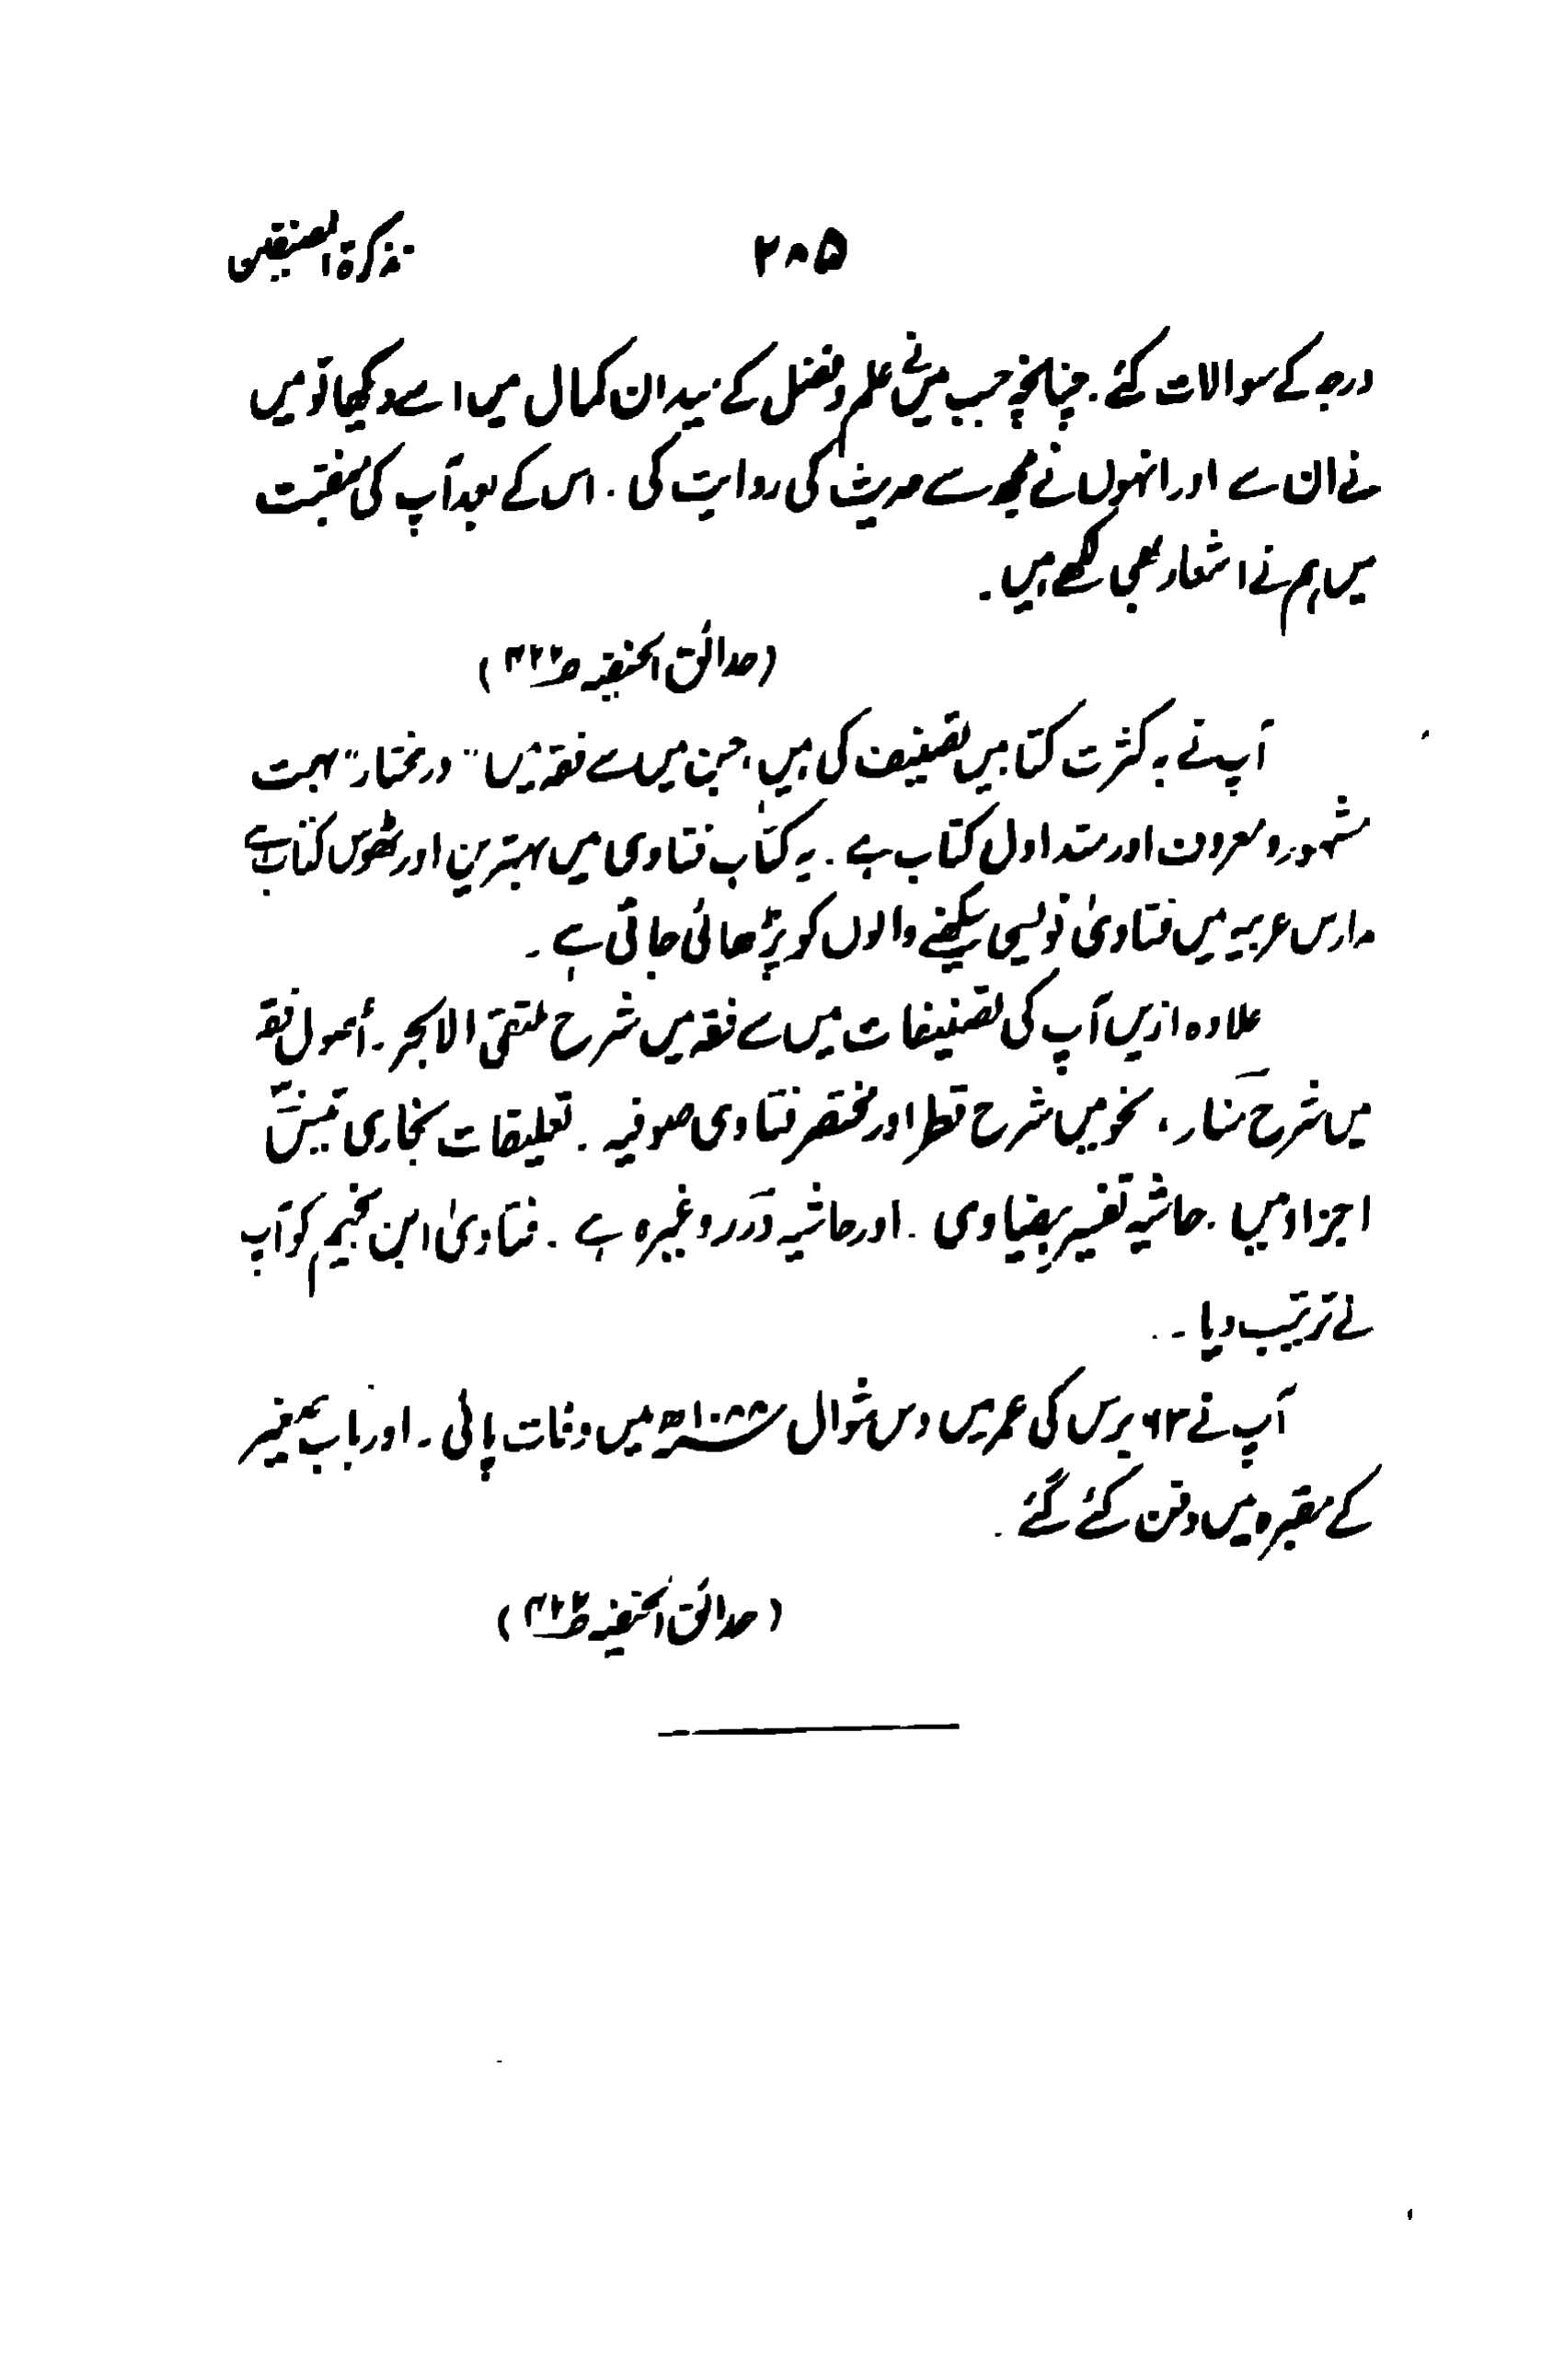 تذکرۃ المصنفین ۲۸۵
درجہ کے سوالات کئے۔ چنانچہ جب میں نے علم و فضل کے میدان کمال میں اسے دیکھا تو میں
نے ان سے اور انہوں نے مجھ سے حدیث کی روایت کی۔ اس کے بعد آپ کی منقبت
میں ہم نے اشعار بھی لکھے ہیں۔
(حدائق الحنفیہ ص۴۲۲)
آپ نے بہ کثرت کتابیں تصنیف کی ہیں، جن میں سے فقہ میں "درمختار" بہت
مشہور و معروف اور متداول کتاب ہے۔ یہ کتاب فتاوی میں بہترین اور ٹھوس کتاب ہے
مدارس عربیہ میں فتاویٰ نویسی سیکھنے والوں کو پڑھائی جاتی ہے۔
علاوہ ازیں آپ کی تصنیفات میں سے فقہ میں شرح ملتقی الابحر۔ اُصول فقہ
میں شرح منار، نحو میں شرح قطر اور مختصر فتاوی صوفیہ۔ تعلیقات بخاری تیس
اجزاء میں۔ حاشیہ تفسیر بیضاوی۔ اور حاشیہ دُرر وغیرہ ہے۔ فتاویٰ ابن نجیم کو آپ
نے ترتیب دیا۔
آپ نے ۶۳ برس کی عمر میں دس شوال ۱۰۸۸ھ میں وفات پائی۔ اور باب صغیر
کے مقبرہ میں دفن کئے گئے۔
(حدائق الحنفیہ ص۴۲۲)